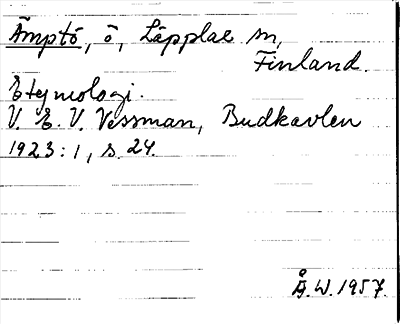 Ämptö, ö, Läpplax sn,
Finland.
Etymologi.
V. E. V. Wessman, Budkavlen
1923:1, s. 24.
Å.W.1957.